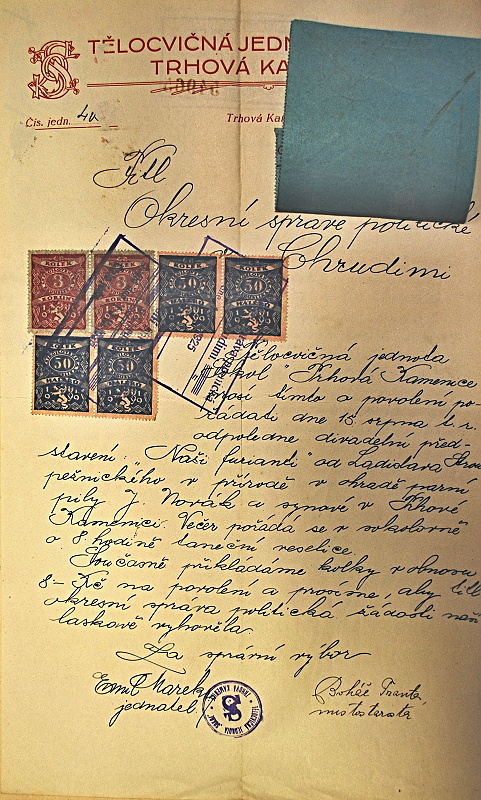 TĚLOCVIČNÁ JEDN
TRHOVÁ KA
Čís. jedn. 40
Trhová Kam
Titl
Okresní správě politické
Chrudimi
KOLEK KOLEK KOLEK KOLEK
3 3 50 50
KORUNY KORUNY HALÉŘŮ HALÉŘŮ
KOLEK KOLEK
50 50
HALÉŘŮ HALÉŘŮ
Tělocvičná jednota
Sokol" Trhová Kamenice
prosí tímto o povolení po-
řádati dne 15 srpna t. r.
odpoledne divadelní před-
stavení: "Naši furianti" od Ladislava Strou
pežnického v přírodě v ohradě parní
pily J. Novák a synové v Trhové
Kamenici. Večer pořádá se v sokolovně
o 8 hodině taneční veselice.
Současně přikládáme kolky v obnosu
8- Kč na povolení a prosíme, aby titl
okresní správa politická žádosti naší
laskavě vyhověla.
Za správní výbor
Emil Marek
jednatel
Boháč Franta
místostarosta